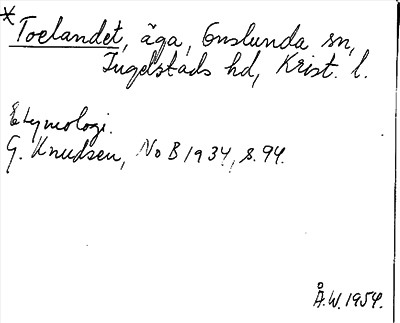 * Toelandet, äga, Önslunda sn,
Ingelstads hd, Krist. l.
Etymologi.
G. Knudsen, NoB 1934, s. 94.
Å.W. 1954.